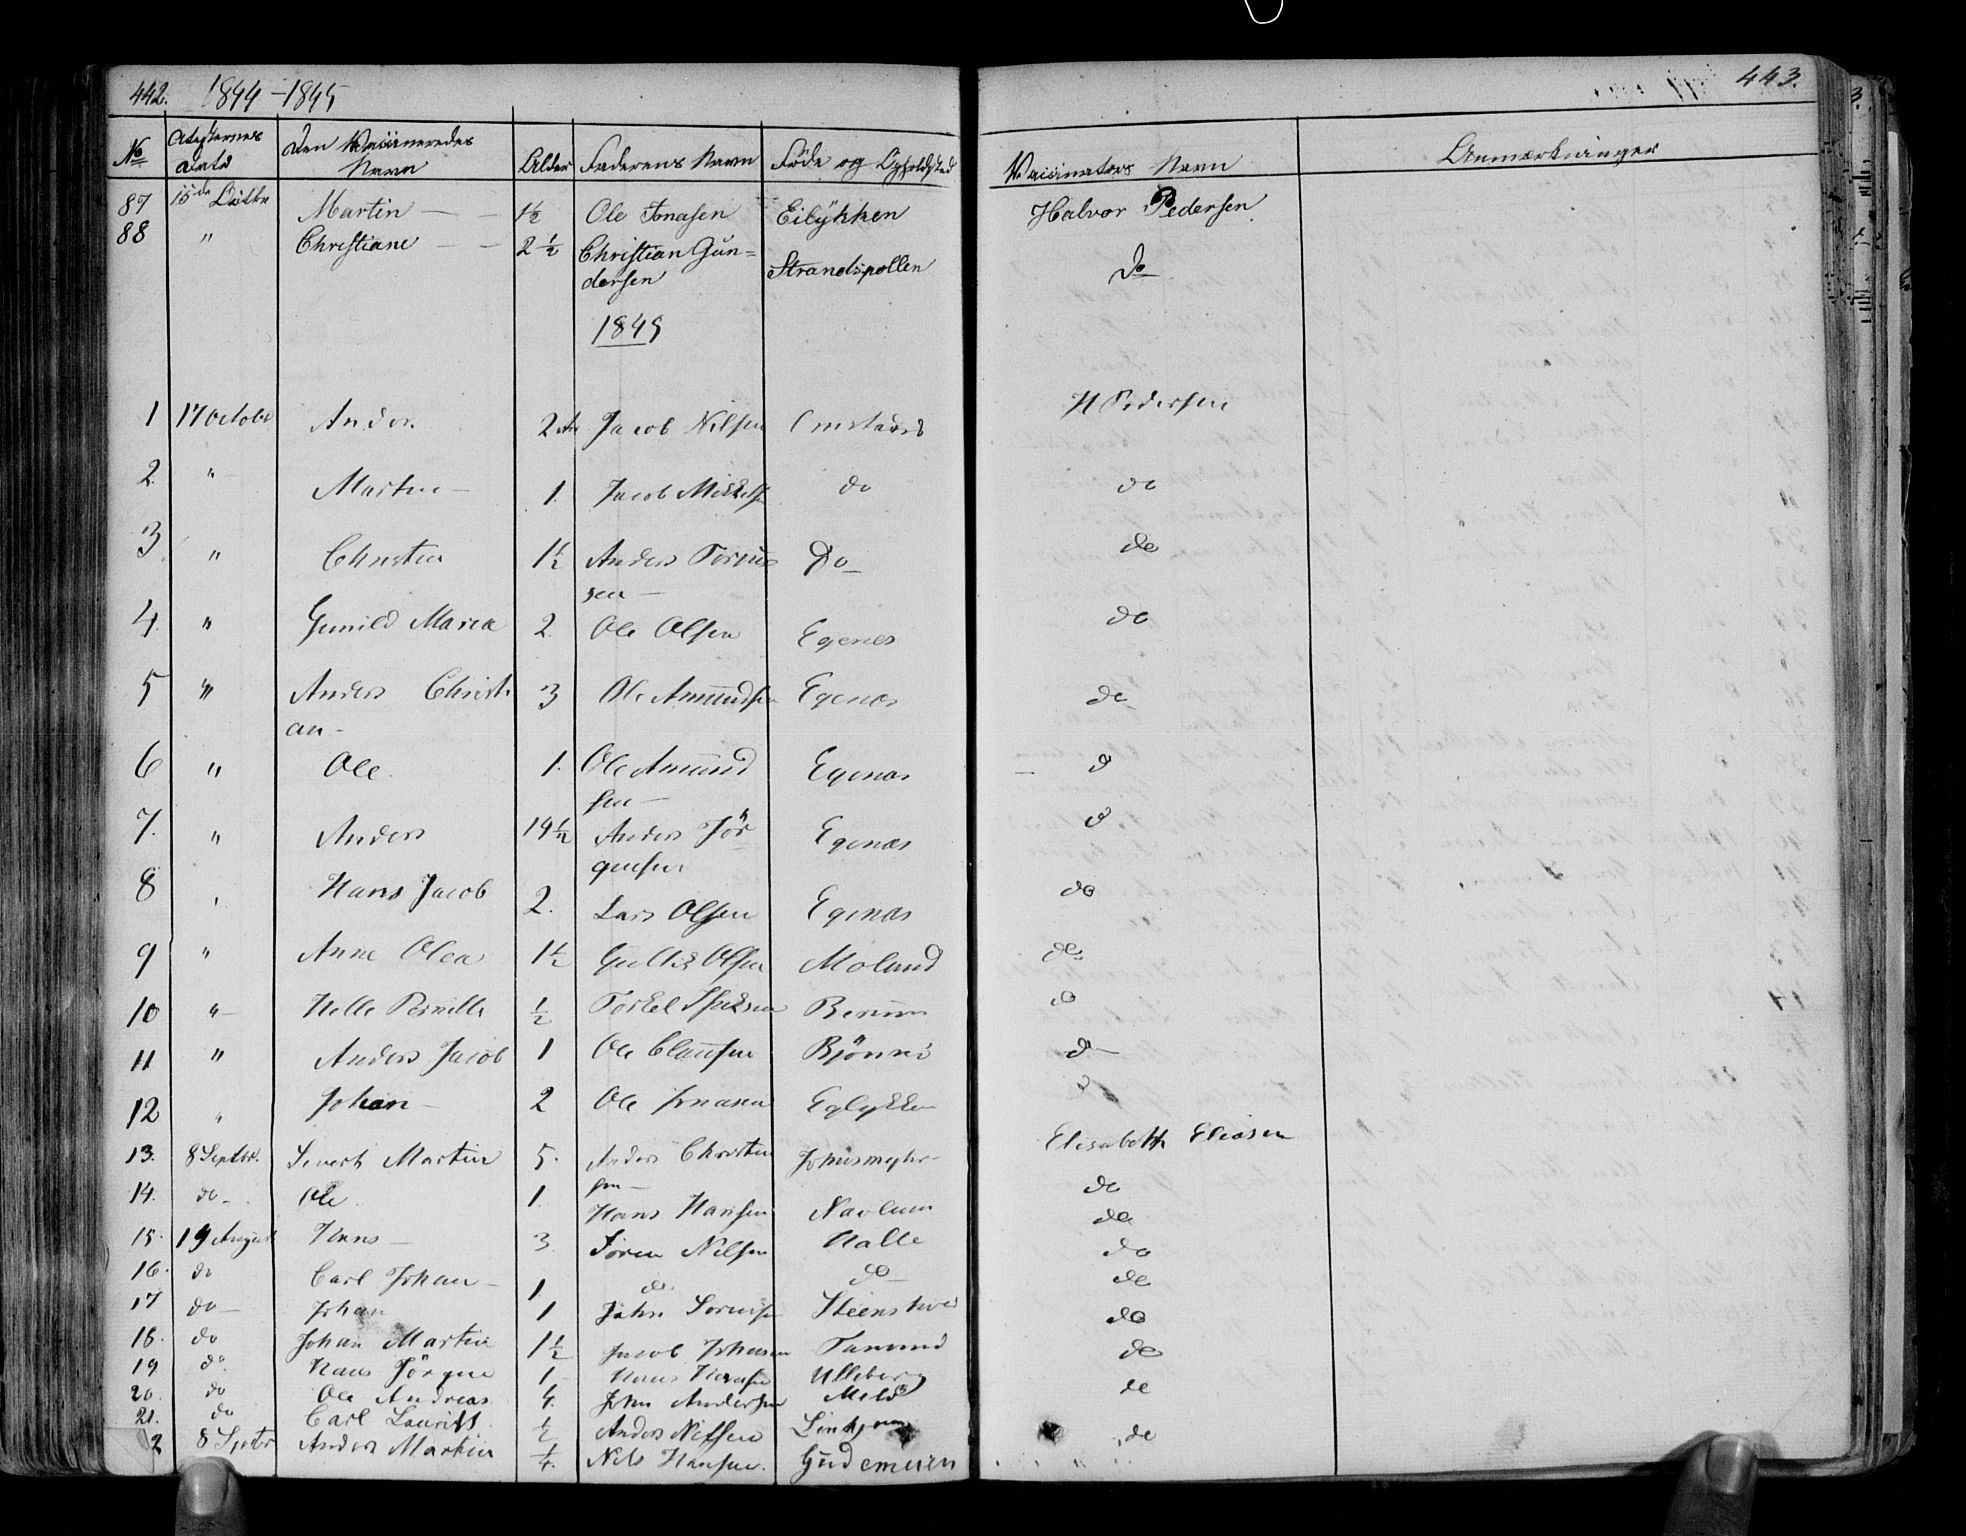 442. 1844-1845
443.
No Attesternes Datd Den Vacsineredes Navn Alder Faderens Navn Föde og Opholdsted Vacsinators Navn Anmærkninger
87 15de Octbr Martin — — 1½ Ole Jonasen Eilÿkken Halvor Pedersen
88 " Christiane — — 2 ½ Christian Gün=
dersen Strandspollen do
1845
1 17 Octobr Anders 2 Jacob Nilsen Omstads H Pedersen
2. " Martin — 1. Jacob Mikkels do do
3 " Christen 1½ Anders
sen — Do do
4. " Gunild Maria 2. Ole Olsen Egenes do
5 " Anders Christi
an - 3 Ole Amundsen Egenæs do
6 " Ole. 1. Ole Amund
sen — Egenæs d
7. " Anders 19½ Anders Jör
gensen Egenæs d
8 " Hans Jacob 2. Lars Olsen Egenæs do
9 " Anne Olea 1½ Gullik Olsen Moland do
10 " Helle Pernille ½ Torkel do
11 " Anders Jacob 1 Ole Claüsen Bjönnes d—
12 " Johan — 2 Ole Jonasen Eglykken d
13. 8 Septbr. Severt Martin 5. Anders Christen
sen — Elisabeth Eliasen
14. do - Ole 1. Hans Hansen Navlum do
15. 19 August Hans — 3 Sören Nilsen Halle do
16. do Carl Johan — 1 do. do — do
17 do — Johan 1 John Sörensen Steensholt do
18. do Johan Martin 1½ Jacob Johansen Tanum do
19 do Hans Jörgen 1 Hans Hansen Ulleberg do
20. do Ole Andreas 4. John Andersen Melø do
21. do Carl Laurits ½ Anders Nilsen
2 8 Septbr Anders Martin ¼. Nils Hansen. do